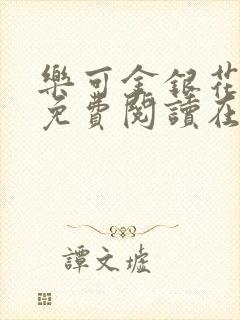 樂可金銀花
免費閱讀在
譚文墟